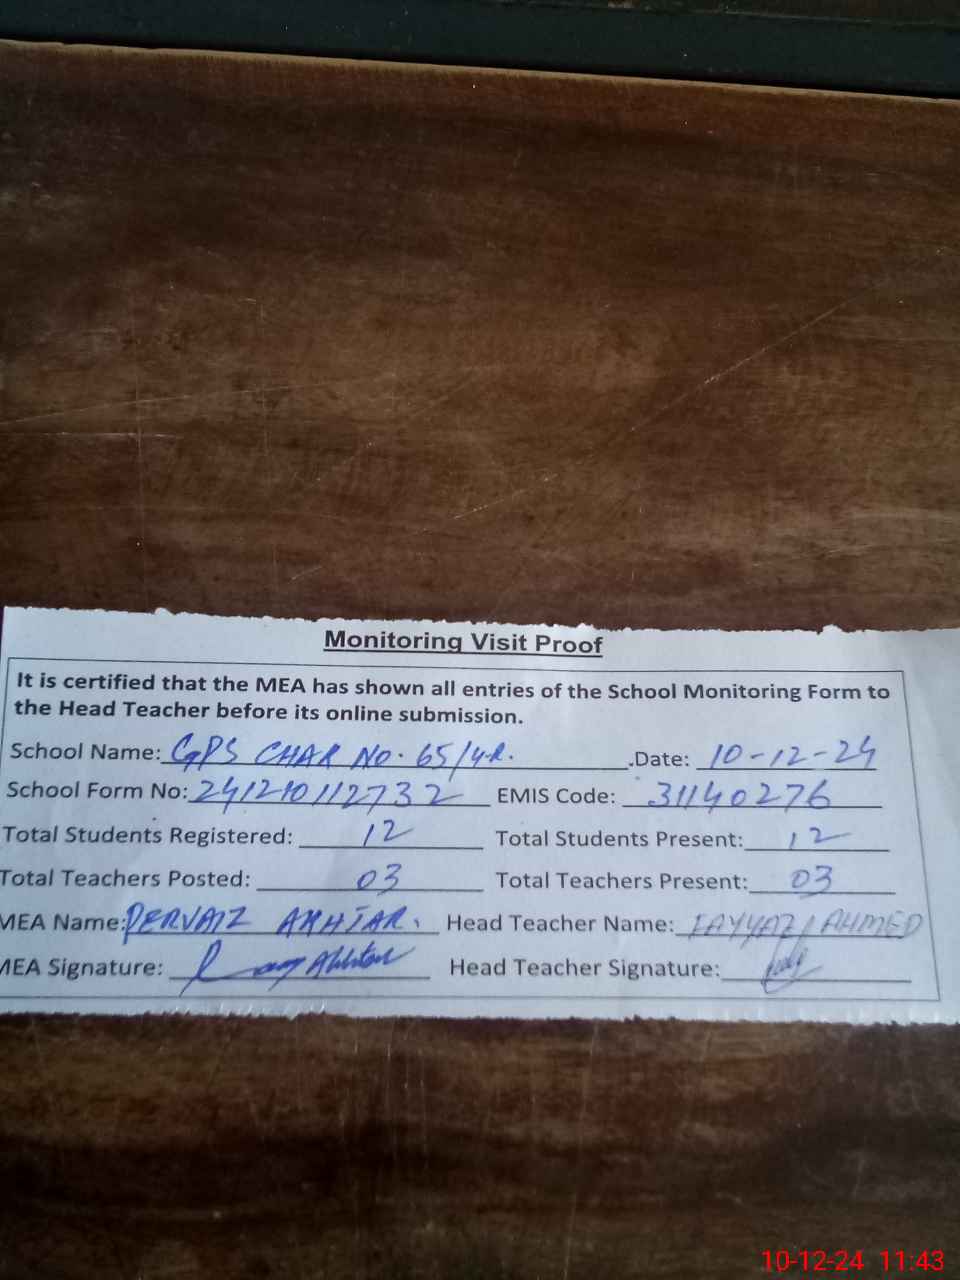 Monitoring Visit Proof
It is certified that the MEA has shown all entries of the School Monitoring Form to
the Head Teacher before its online submission.
School Name: GPS CHAK NO. 65/4-R. .Date: 10-12-24
School Form No: 241210112732 EMIS Code: 31140276
Total Students Registered: 12 Total Students Present: 12
Total Teachers Posted: 03 Total Teachers Present: 03
MEA Name: PERVAIZ AKHTAR. Head Teacher Name: FAYYAZ AHMED
MEA Signature: Akhtar Head Teacher Signature:
10-12-24 11:43